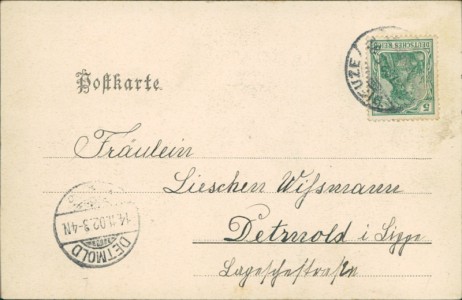 Postkarte.
DEUTSCHES REICH
5
Fräulein
Lieschen Wissmann
Detmold i Lippe
Lageschestraße
14.11.02.3-4N
DETMOLD